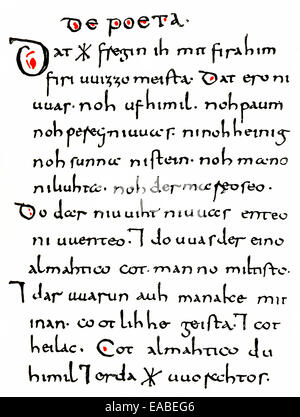 DE POETA.
Dat ᚼ fregin ih mit firahim
firi uuizzo meista. Dat ero ni
uuas. noh ufhimil. noh paum
noh pereg ni uuas. ni noh heinig
noh sunna ni stein. noh mano
ni liuhta. noh der mareo seo.
Do dar niuuiht ni uuas enteo
ni uuenteo. ⁊ do uuas der eino
almahtico cot. manno miltisto.
⁊ dar uuarun auh manake mit
inan. cootlihhe geista. ⁊ cot
heilac. Cot almahtico du
himil ⁊ erda ᚼ uuorahtos.
alamy
EABEG6